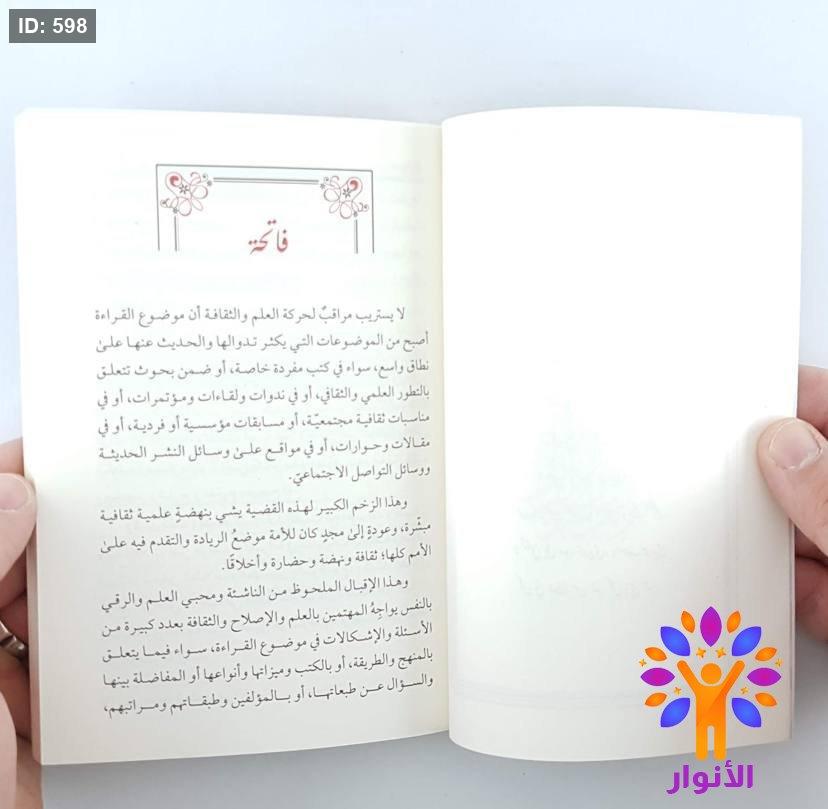 ID: 598
فاتحة
لا يستريب مراقبٌ لحركة العلم والثقافة أن موضوع القراءة
أصبح من الموضوعات التي يكثر تداولها والحديث عنها علىٰ
نطاق واسع، سواء في كتب مفردة خاصة، أو ضمن بحوث تتعلق
بالتطور العلمي والثقافي، أو في ندوات ولقاءات ومؤتمرات، أو في
مناسبات ثقافية مجتمعيّة، أو مسابقات مؤسسية أو فردية، أو في
مقالات وحوارات، أو في مواقع علىٰ وسائل النشر الحديثة
ووسائل التواصل الاجتماعيّ.
وهذا الزخم الكبير لهذه القضية يشي بنهضةٍ علمية ثقافية
مبشّرة، وعودةٍ إلىٰ مجدٍ كان للأمة موضعُ الريادة والتقدم فيه علىٰ
الأمم كلها؛ ثقافة ونهضة وحضارة وأخلاقًا.
وهذا الإقبال الملحوظ من الناشئة ومحبي العلم والرقي
بالنفس يواجِهُ المهتمين بالعلم والإصلاح والثقافة بعدد كبيرة من
الأسئلة والإشكالات في موضوع القراءة، سواء فيما يتعلق
بالمنهج والطريقة، أو بالكتب وميزاتها وأنواعها أو المفاضلة بينها
والسؤال عن طبعاتها، أو بالمؤلفين وطبقاتهم ومراتبهم،
الأنوار